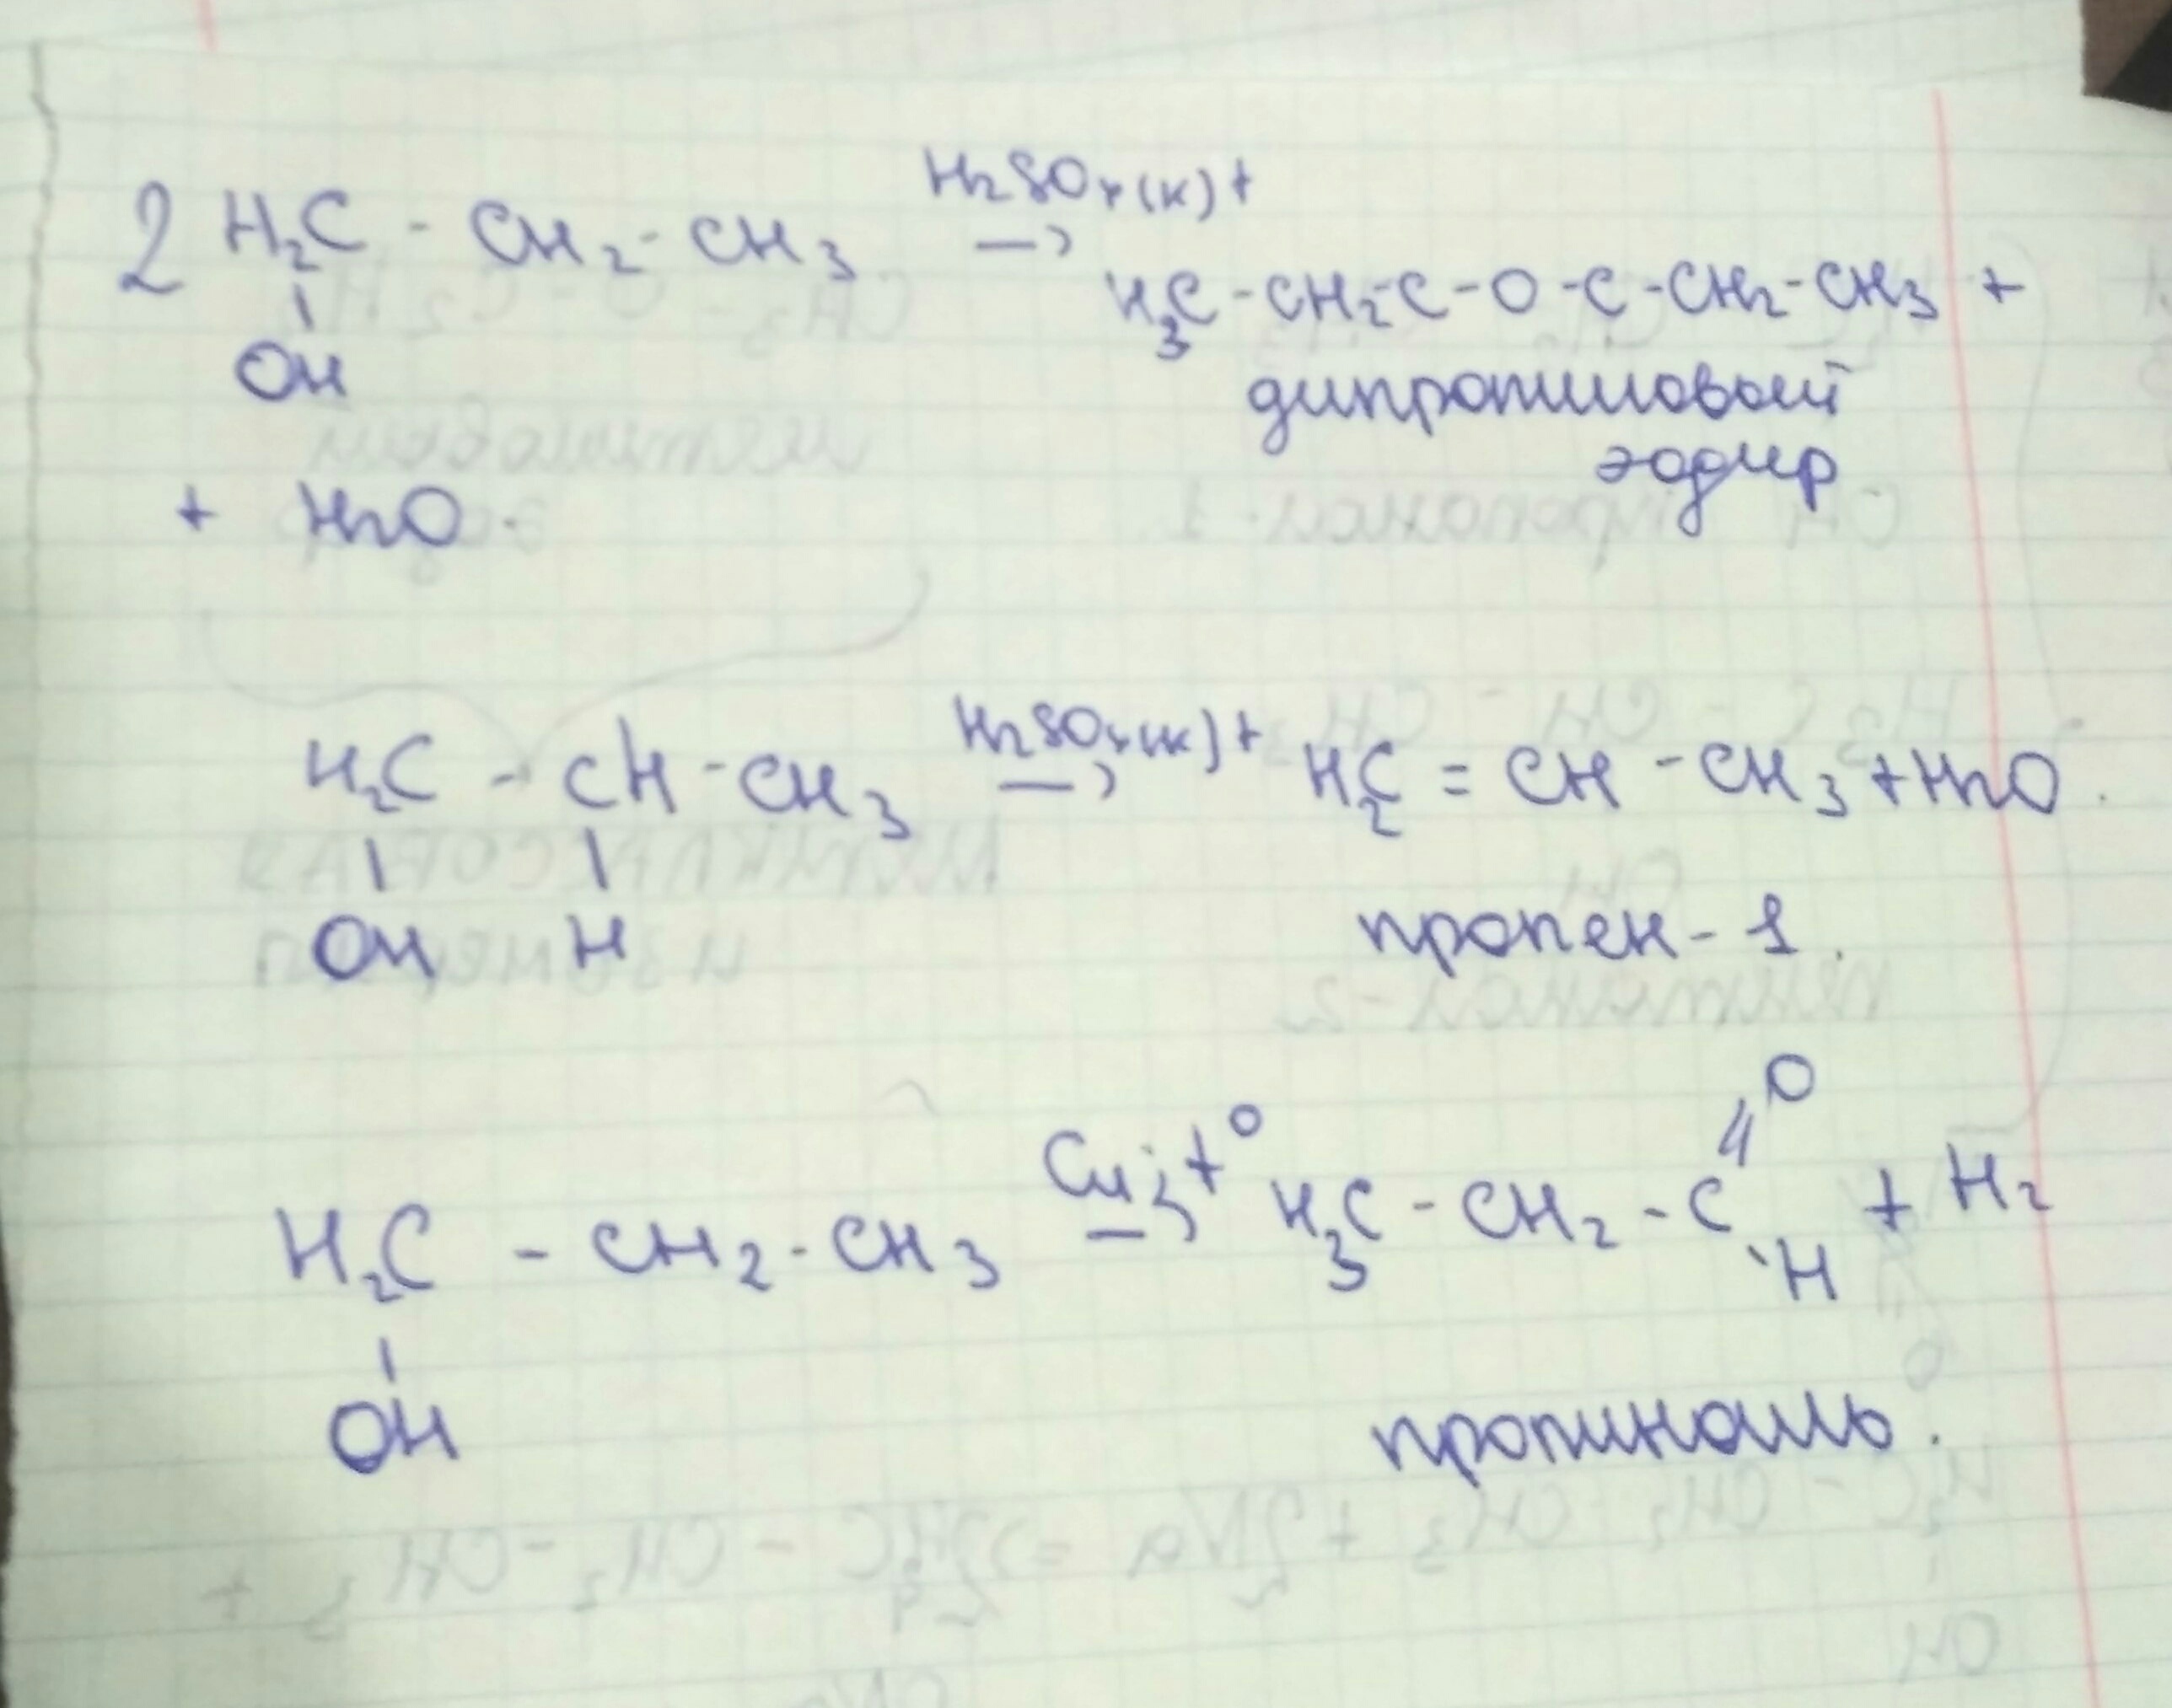 H₂SO₄(к)t
2 H₂C - CH₂ - CH₃ →
H₃C - CH₂ - C - O - C - CH₂ - CH₃ +
OH
дипропиловый
эфир
+ H₂O.
H₂C - CH - CH₃ H₂SO₄(к)t → H₂C = CH - CH₃ + H₂O.
OH H
пропен-1.
H₂C - CH₂ - CH₃ Cu, t° → H₃C - CH₂ - C O H + H₂
OH
пропиналь.